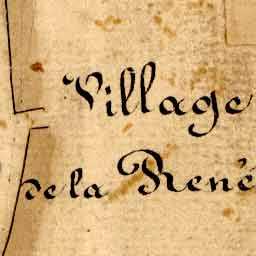 Village
de la René